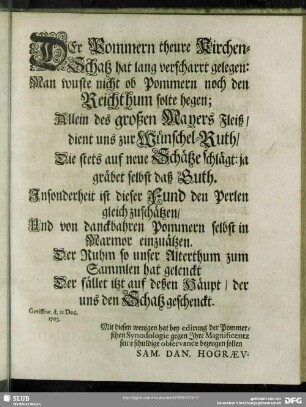 DEr Pommern theure Kirchen-
Schatz hat lang verscharrt gelegen:
Man wuste nicht ob Pommern noch den
Reichthum solte hegen;
Allein des großen Mayers Fleiß/
dient uns zur Wünschel-Ruth/
Die stets auf neue Schätze schlägt: ja
gräbet selbst daß Guth.
Insonderheit ist dieser Fund den Perlen
gleich zuschätzen/
Und von danckbahren Pommern selbst in
Marmor einzuätzen.
Der Ruhm so unser Alterthum zum
Sammlen hat gelenckt
Der fället itzt auf deßen Häupt/ der
uns den Schatz geschenckt.
d. 21 Dec.
1703.
Mit diesen wenigen hat bey edirung der Pommer-
schen Synodologie gegen Ihre Magnificentz
seine schuldige observance bezeigen sollen
SAM. DAN. HOGRÆV:
SLUB
Wir führen Wissen.